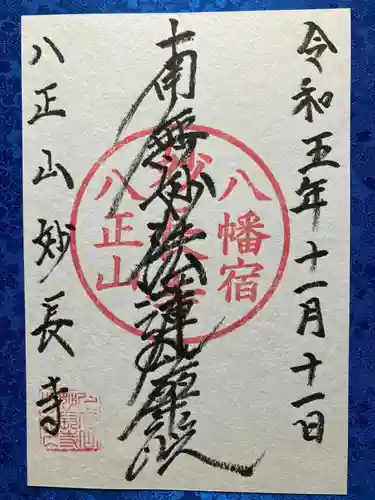 令和五年十一月十一日
南無妙法蓮華経
八幡宿
妙長寺
八正山
八正山妙長寺